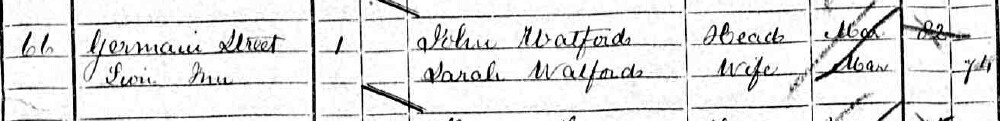 66 Germain Street 1 John Watford Head Mar 82
Twin Inn Sarah Watford Wife Mar 74